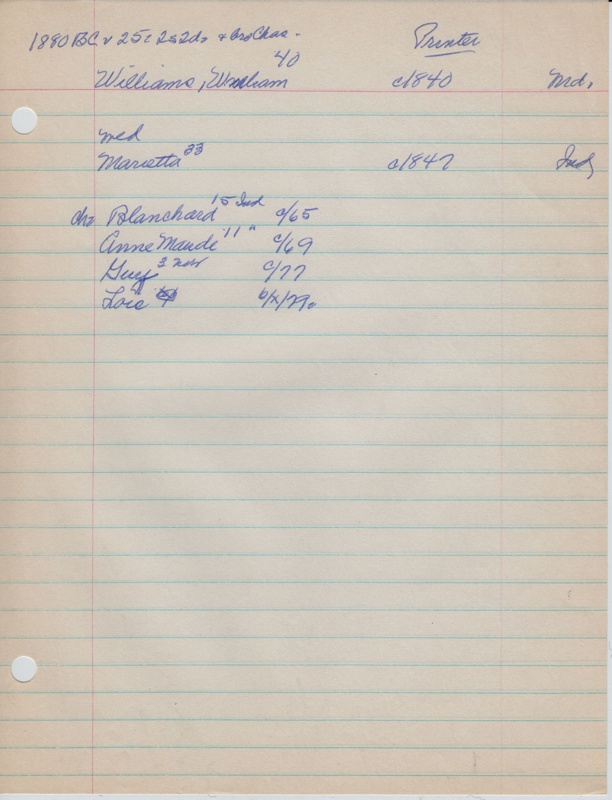 1880 BC v 25c 2s2ds + bro Chas. Printer
40
Williams, William c1840 Md.
md
Marietta 33 c1847 Ind
ch: Blanchard 15 Ind c/65
Anne Maude 11 " c/69
Guy 3 c/77
Lois b/x/79.